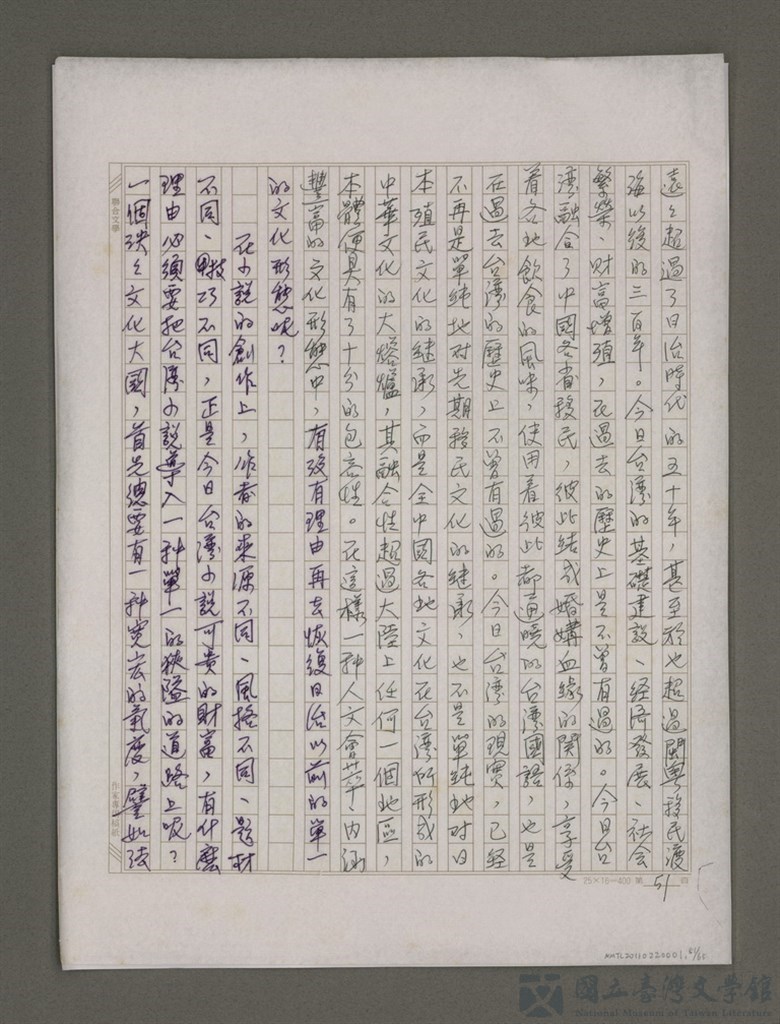 遠々超過了日治時代的五十年，甚至於也超過閩粵移民渡
海以後的三百年。今日台灣的基礎建設、經濟發展、社會
繁榮、財富增殖，在過去的歷史上是不曾有過的。今日台
灣融合了中國各省移民，彼此結成婚媾血緣的関係，享受
着各地飲食的風味，使用着彼此都通曉的台灣國語，也是
在過去台灣的歷史上不曾有過的。今日台灣的現實，已經
不再是單純地対先期移民文化的継承，也不是單純地対日
本殖民文化的継承，而是全中國各地文化在台灣所形成的
中華文化的大熔爐，其融合性超過大陸上任何一個地區，
本體便具有了十分的包容性。在這樣一种人文會萃、内涵
豐富的文化形態中，有没有理由再去恢復日治以前的單一
的文化形態呢？
在小説的創作上，作者的來源不同、風格不同、題材
不同、技巧不同，正是今日台灣小説可貴的財富，有什麼
理由必須要把台灣小説導入一种單一的狹隘的道路上呢？
一個泱々文化大國，首先總要有一种寬宏的氣度，譬如法
聯合文學
作家專用稿紙
25×16=400 第 51 頁
NMTL20110220001, 51/55
國立臺灣文學館
National Museum of Taiwan Literature